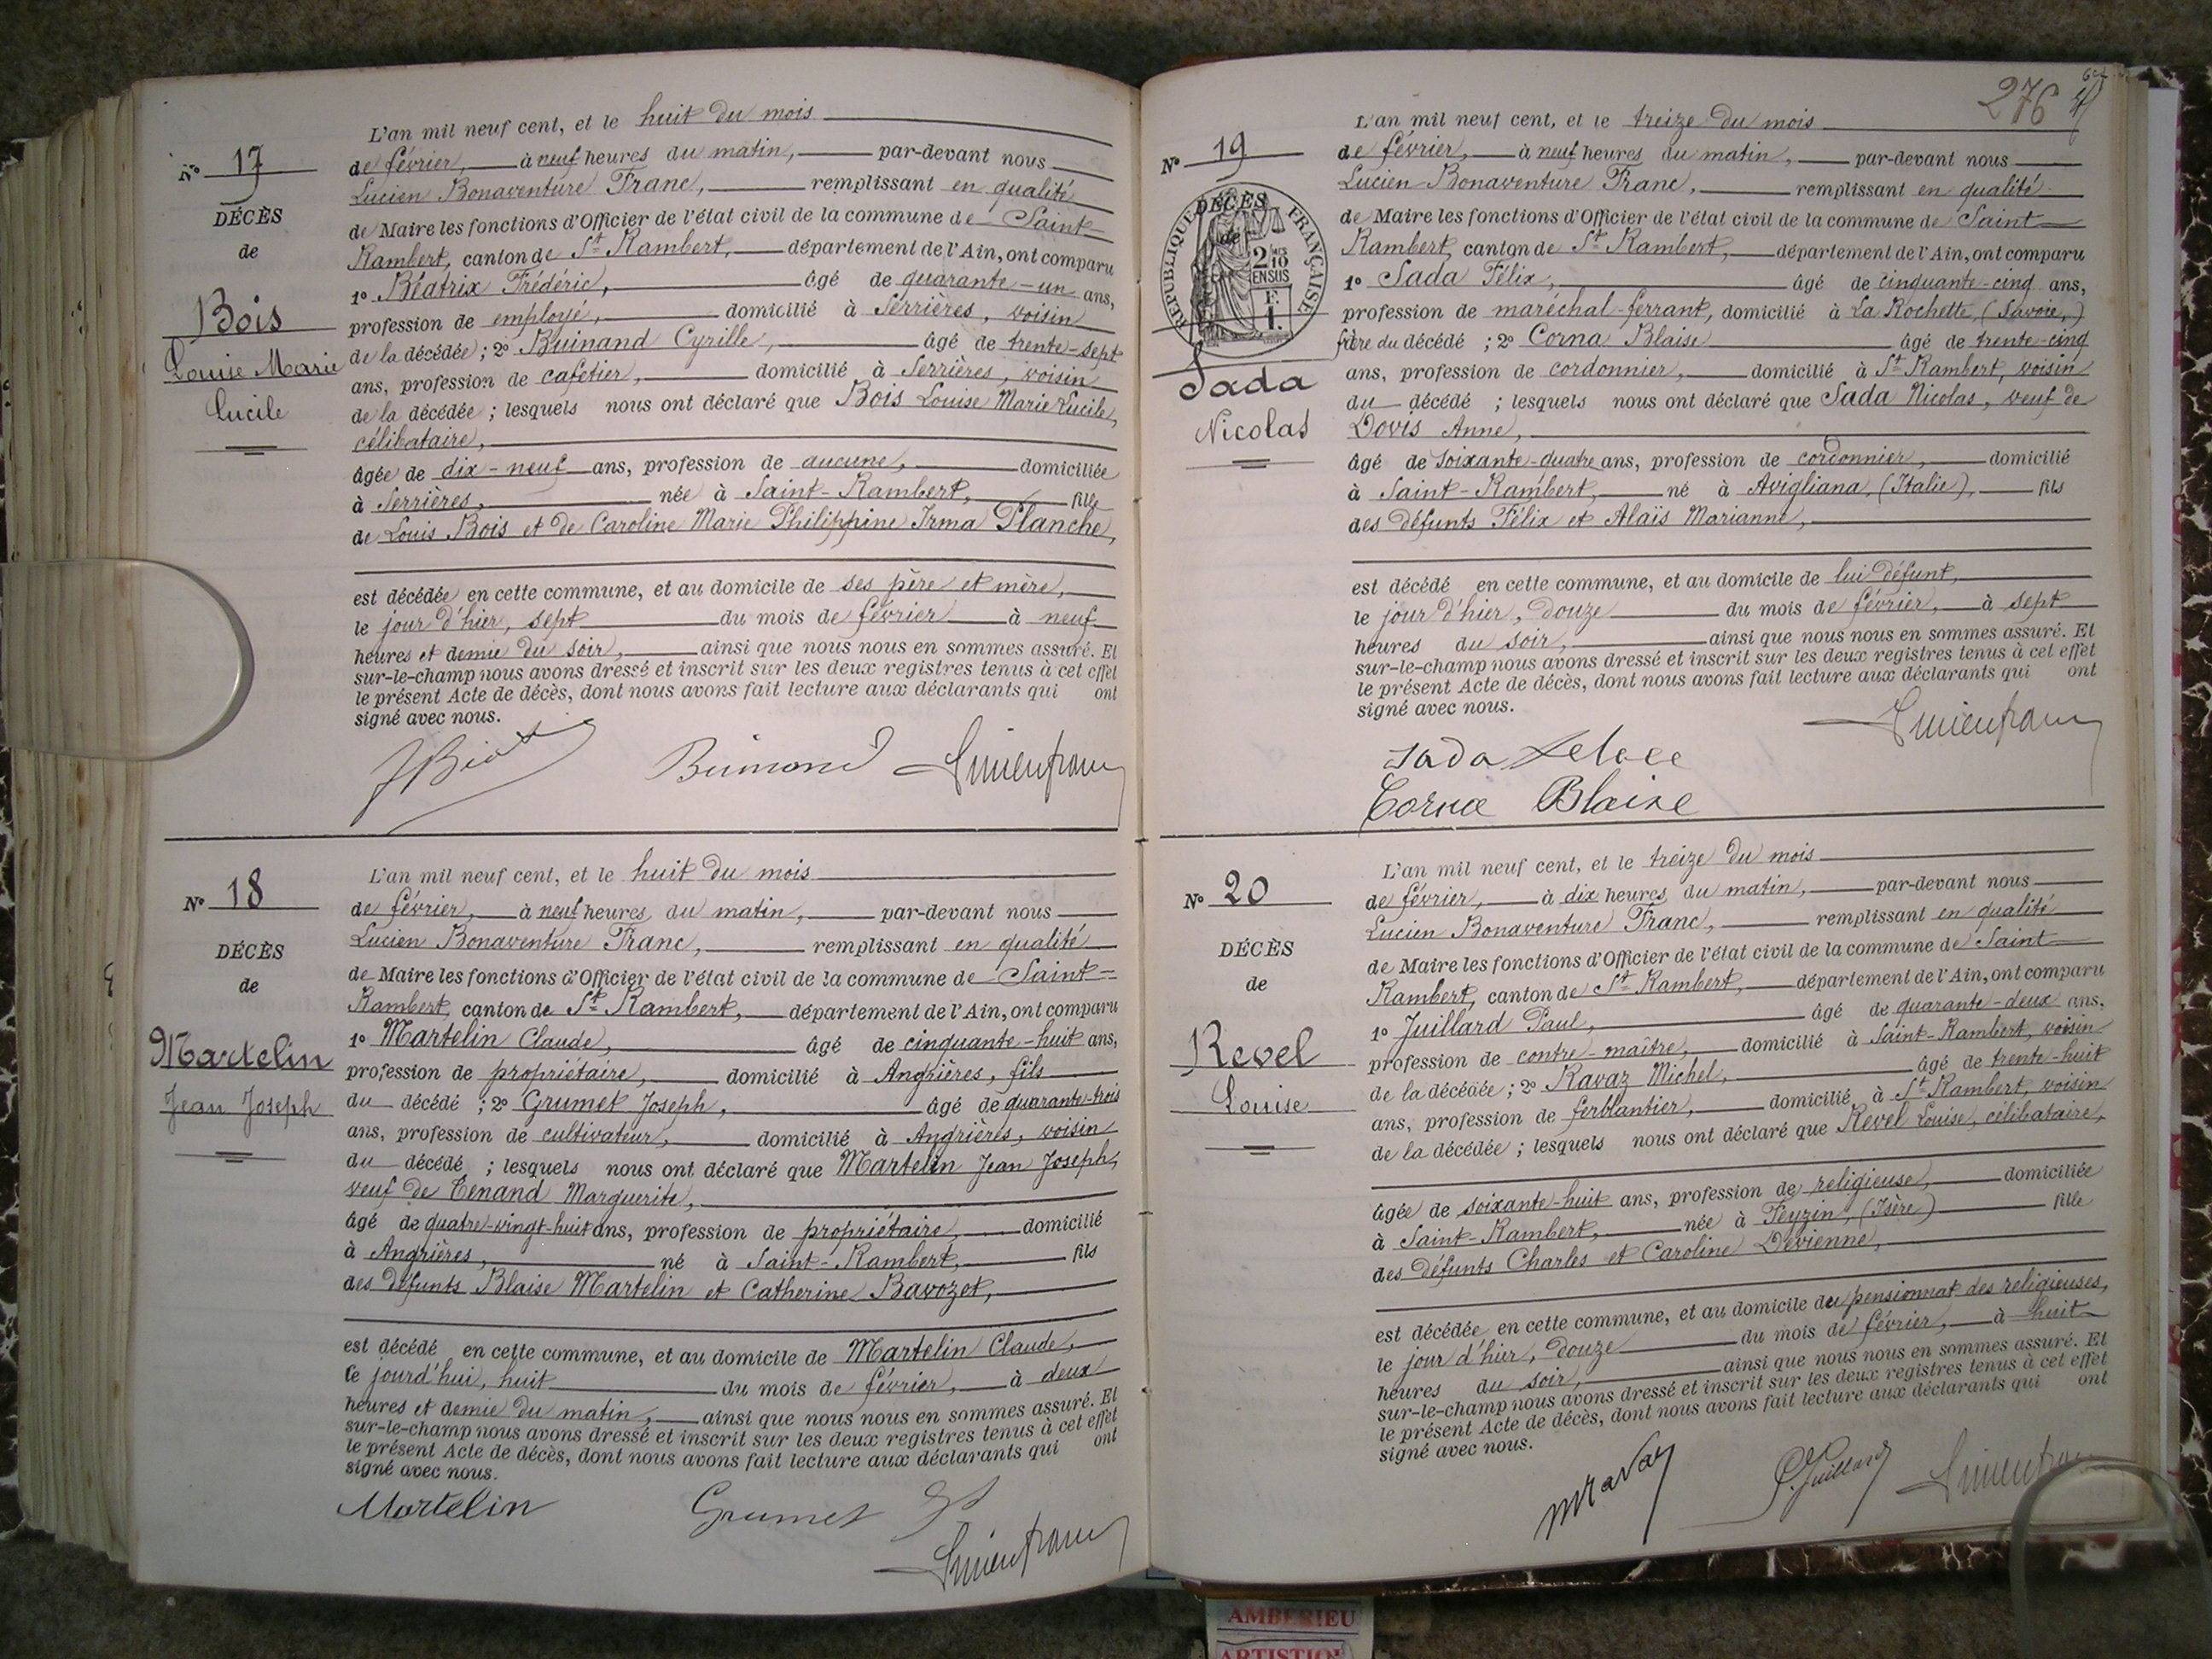 N° 17
DÉCÈS
de
Bois
Louise Marie
Lucile
L'an mil neuf cent, et le huit du mois
de février, à neuf heures du matin, par-devant nous
Lucien Bonaventure Franc, remplissant en qualité
de Maire les fonctions d'Officier de l'état civil de la commune de Saint-
Rambert, canton de St Rambert, département de l'Ain, ont comparu
1° Béatrix Frédéric, âgé de quarante-un ans,
profession de employé, domicilié à Serrières, voisin
de la décédée; 2° Buinand Cyrille, âgé de trente-sept
ans, profession de cafetier, domicilié à Serrières, voisin
de la décédée; lesquels nous ont déclaré que Bois Louise Marie Lucile,
célibataire,
âgée de dix-neuf ans, profession de aucune, domiciliée
à Serrières, née à Saint-Rambert, fille
de Louis Bois et de Caroline Marie Philippine Irma Planche,
est décédée en cette commune, et au domicile de ses père et mère,
le jour d'hier, sept du mois de février à neuf
heures et demie du soir, ainsi que nous nous en sommes assuré. Et
sur-le-champ nous avons dressé et inscrit sur les deux registres tenus à cet effet
le présent Acte de décès, dont nous avons fait lecture aux déclarants qui ont
signé avec nous.
Buinand Lucien franc
N° 18
DÉCÈS
de
Martelin
Jean Joseph
L'an mil neuf cent, et le huit du mois
de février, à neuf heures du matin, par-devant nous
Lucien Bonaventure Franc, remplissant en qualité
de Maire les fonctions d'Officier de l'état civil de la commune de Saint-
Rambert, canton de St Rambert, département de l'Ain, ont comparu
1° Martelin Claude, âgé de cinquante-huit ans,
profession de propriétaire, domicilié à Angrières, fils
du décédé; 2° Grumet Joseph, âgé de quarante-trois
ans, profession de cultivateur, domicilié à Angrières, voisin
du décédé; lesquels nous ont déclaré que Martelin Jean Joseph,
veuf de Tenand Marguerite,
âgé de quatre-vingt-huit ans, profession de propriétaire, domicilié
à Angrières, né à Saint-Rambert, fils
des défunts Blaise Martelin et Catherine Bavozet,
est décédé en cette commune, et au domicile de Martelin Claude,
ce jourd'hui, huit du mois de février, à deux
heures et demie du matin, ainsi que nous nous en sommes assuré. Et
sur-le-champ nous avons dressé et inscrit sur les deux registres tenus à cet effet
le présent Acte de décès, dont nous avons fait lecture aux déclarants qui ont
signé avec nous.
Martelin Grumet
Lucien franc
276
N° 19
DÉCÈS
de
RÉPUBLIQUE FRANÇAISE
2/10 EN SUS
F.
1.
Sada
Nicolas
L'an mil neuf cent, et le treize du mois
de février, à neuf heures du matin, par-devant nous
Lucien Bonaventure Franc, remplissant en qualité
de Maire les fonctions d'Officier de l'état civil de la commune de Saint
Rambert, canton de St Rambert, département de l'Ain, ont comparu
1° Sada Félix, âgé de cinquante-cinq ans,
profession de maréchal-ferrant, domicilié à La Rochette, (Savoie,)
frère du décédé; 2° Corna Blaise âgé de trente-cinq
ans, profession de cordonnier, domicilié à St Rambert, voisin
du décédé; lesquels nous ont déclaré que Sada Nicolas, veuf de
Dovis Anne,
âgé de soixante-quatre ans, profession de cordonnier, domicilié
à Saint-Rambert, né à Avigliana, (Italie), fils
des défunts Félix et Alaïs Marianne,
est décédé en cette commune, et au domicile de lui défunt,
le jour d'hier, douze du mois de février, à sept
heures du soir, ainsi que nous nous en sommes assuré. Et
sur-le-champ nous avons dressé et inscrit sur les deux registres tenus à cet effet
le présent Acte de décès, dont nous avons fait lecture aux déclarants qui ont
signé avec nous.
Lucien franc
Sada
Corna Blaise
N° 20
DÉCÈS
de
Revel
Louise
L'an mil neuf cent, et le treize du mois
de février, à dix heures du matin, par-devant nous
Lucien Bonaventure Franc, remplissant en qualité
de Maire les fonctions d'Officier de l'état civil de la commune de Saint
Rambert, canton de St Rambert, département de l'Ain, ont comparu
1° Juillard Paul, âgé de quarante-deux ans,
profession de contre-maître, domicilié à Saint-Rambert, voisin
de la décédée; 2° Ravaz Michel, âgé de trente-huit
ans, profession de ferblantier, domicilié à St Rambert, voisin
de la décédée; lesquels nous ont déclaré que Revel Louise, célibataire,
âgée de soixante-huit ans, profession de religieuse, domiciliée
à Saint-Rambert, née à Feyzin, (Isère) fille
des défunts Charles et Caroline Devienne,
est décédée en cette commune, et au domicile du pensionnat des religieuses,
le jour d'hier, douze du mois de février, à huit
heures du soir, ainsi que nous nous en sommes assuré. Et
sur-le-champ nous avons dressé et inscrit sur les deux registres tenus à cet effet
le présent Acte de décès, dont nous avons fait lecture aux déclarants qui ont
signé avec nous.
M Ravaz P. Juillard Lucien franc
AMBERIEU
ARTISTIQUE